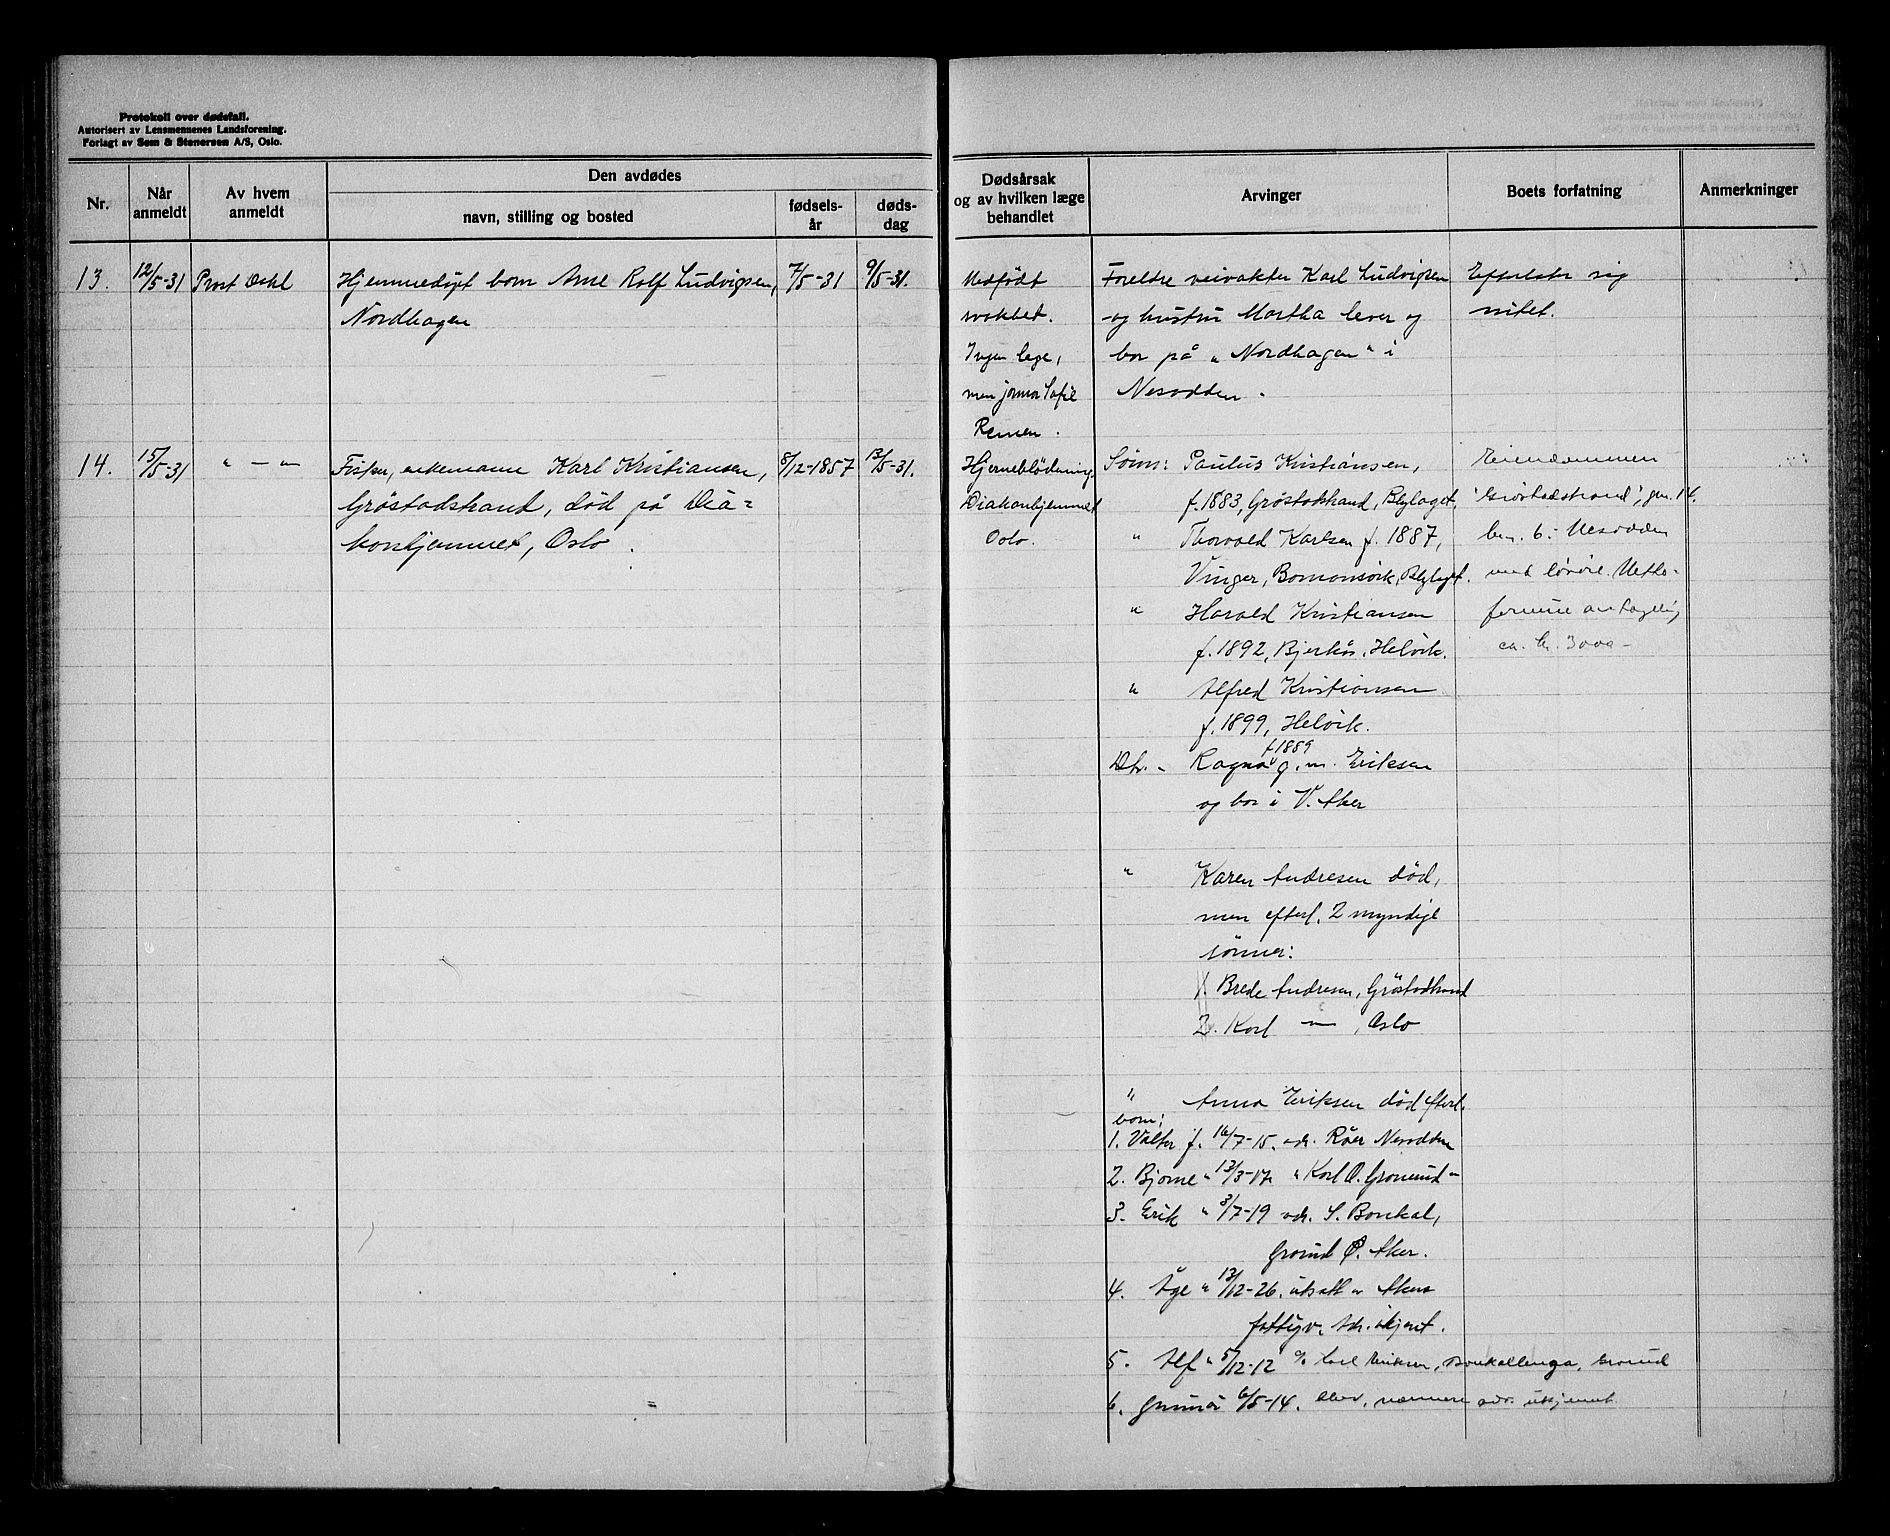 Protokoll over dødsfall.
Autorisert av Lensmennenes Landsforening.
Forlagt av Sem & Stenersen A/S, Oslo.
Nr.
Når anmeldt
Av hvem anmeldt
Den avdødes
navn, stilling og bosted
fødsels-år
døds-dag
Dødsårsak og av hvilken læge behandlet
Arvinger
Boets forfatning
Anmerkninger
13.
12/5-31
Prost Dahl
Hjemmedøpt barn Arne Rolf Ludvigsen,
Nordhagen
7/5-31
9/5-31.
Medfödt
svakhet.
Ingen lege,
men jormor Sofie
Remen.
Foreldre veivakter Karl Ludvigsen
og hustru Martha lever og
bor på "Nordhagen" i
Nesodden.
Efterlater sig
intet.
14.
15/5-31
" — "
Fisker, enkemann Karl Kristiansen,
Gröstadstrand, död på Dia-
konhjemmet, Oslo.
8/12-1857
13/5-31.
Hjerneblödning.
Diakonhjemmet
Oslo.
Sönn: Paulus Kristiansen,
f. 1883, Gröstadstrand, Blylaget.
" Thorvald Karlsen f. 1887,
Vinger, Bomansvik, Blylaget.
" Harald Kristiansen
f. 1892, Bjerkås, Helvik.
" Alfred Kristiansen
f. 1899, Helvik.
Dtr. - Ragna f. 1889 g. m. Eriksen
og bor i V. Aker
" Karen Andresen död,
men efterl. 2 myndige
sönner:
1. Brede Andresen, Gröstadstrand
2. Karl — " — , Oslo
" Anna Eriksen död efterl.
barn:
1. Valter f. 16/7-15. adr. Röer Nesodden
2. Bjarne " 13/3-17 " Karl O. Grorud -
3. Erik " 3/7-19 adr. S. Bonkal,
Grorud Ö. Aker.
4. Åge " 13/12-26. utsatt av Akers
fattigv. Adr. ukjent.
5. Alf " 5/12-12 c/o Karl Eriksen, Bonkallenga, Grorud
6. Gunnar 6/5-14. nærmere adr. ukjent
Eiendommen
"Gröstadstrand", gnr. 14.
bnr. 6 i Nesodden
med lösöre. Netto-
formue antagelig
ca. kr. 3000-